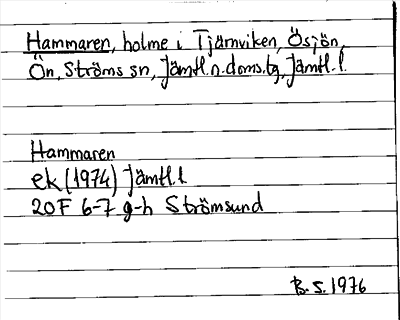 Hammaren, holme i Tjärnviken, Ösjön,
Ön, Ströms sn, Jämtl.n.doms.tg, Jämtl.l.
Hammaren
ek (1974) Jämtl.l
20F 6-7 g-h Strömsund
B.S. 1976